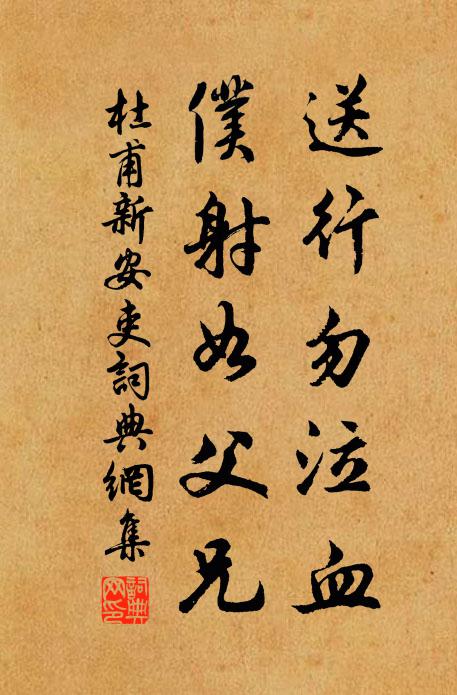 送行勿泣血
僕射如父兄
杜甫新安吏詞典網集
詞典網印